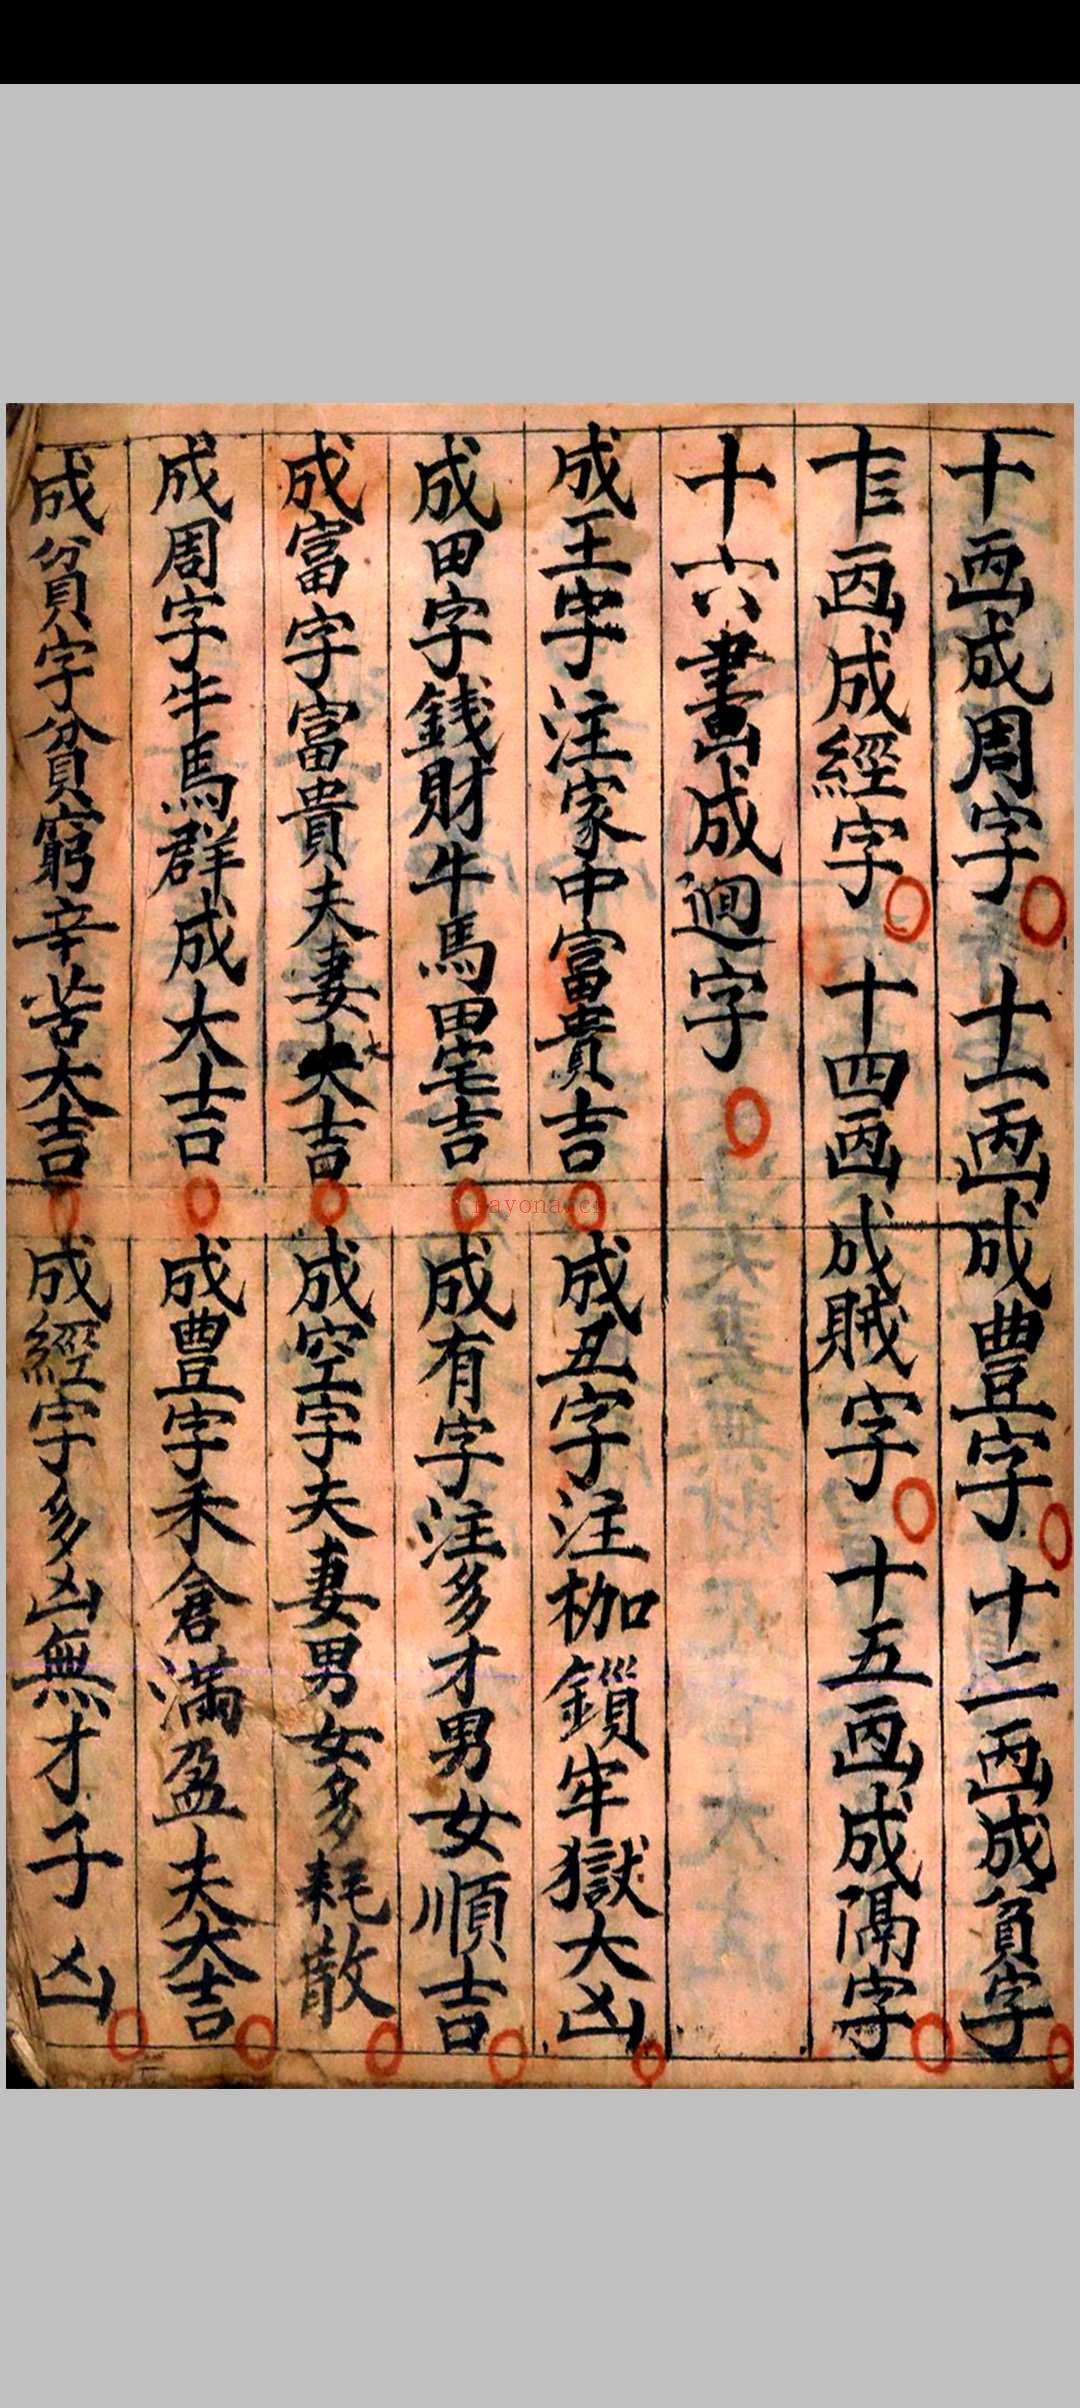 十画成周字 十一画成豊字 十二画成貟字
十三画成經字 十四画成賊字 十五画成隔字
十六畫成迴字
成王字注家中富貴吉 成丑字注枷鎖牢獄大凶
成田字錢財牛馬田宅吉 成有字注多才男女順吉
成富字富貴夫妻大吉 成空字夫妻男女多耗散
成周字牛馬群成大吉 成豊字禾倉滿盈夫大吉
成貧字貧窮辛苦大吉 成經字多凶無才子凶